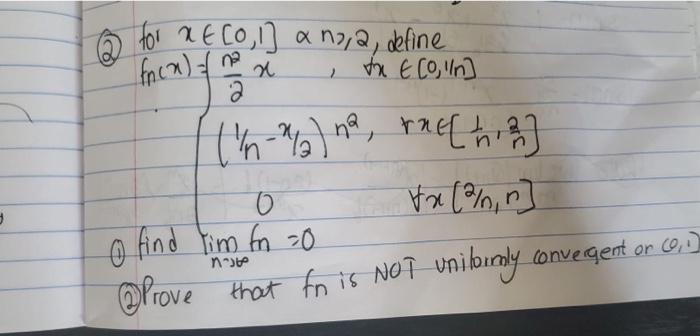 ② for x ∈ [0,1] & n ≥ 2, define
fn(x) = { n²/2 x , ∀x ∈ [0,1/n]
(1/n - x/2) n², ∀x ∈ [1/n, 2/n]
0 ∀x [2/n, n]
① find lim n→∞ fn = 0
② Prove that fn is NOT uniformly convergent on [0,1]